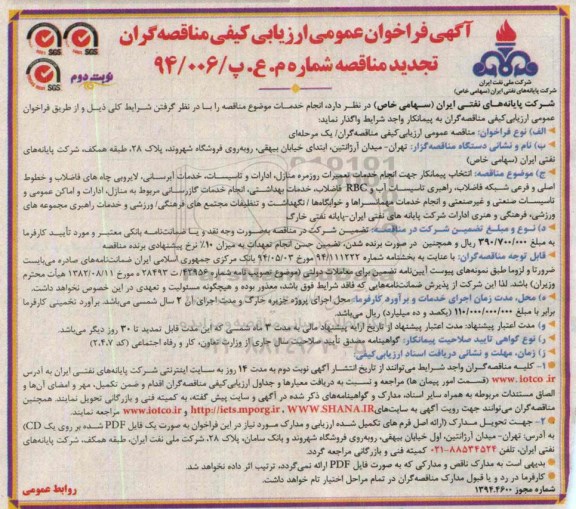 آگهی فراخوان عمومی ارزیابی کیفی مناقصه‌گران
تجدید مناقصه شماره م.ع.پ/۹۴/۰۰۶
نوبت دوم
شرکت ملی نفت ایران
شرکت پایانه‌های نفتی ایران (سهامی خاص)
شرکت پایانه‌های نفتی ایران (سهامی خاص) در نظر دارد، انجام خدمات موضوع مناقصه را با در نظر گرفتن شرایط کلی ذیل و از طریق فراخوان
عمومی ارزیابی کیفی مناقصه‌گران به پیمانکار واجد شرایط واگذار نماید:
الف) نوع فراخوان: مناقصه عمومی ارزیابی کیفی مناقصه‌گران/ یک مرحله‌ای
ب) نام و نشانی دستگاه مناقصه‌گزار: تهران- میدان آرژانتین، ابتدای خیابان بیهقی، روبه‌روی فروشگاه شهروند، پلاک ۲۸، طبقه همکف، شرکت پایانه‌های
نفتی ایران (سهامی خاص)
ج) موضوع مناقصه: انتخاب پیمانکار جهت انجام خدمات تعمیرات روزمره منازل، ادارات و تأسیسات، خدمات آبرسانی، لایروبی چاه های فاضلاب و خطوط
اصلی و فرعی شبکه فاضلاب، راهبری تاسیسات آب و RBC فاضلاب، خدمات بهداشتی، انجام خدمات گازرسانی مربوط به منازل، ادارات و اماکن عمومی و
تاسیسات صنعتی و غیرصنعتی و انجام خدمات مهمانسراها و خوابگاه‌ها / نگهداشت و تنظیفات مجتمع های فرهنگی/ ورزشی و خدمات راهبری مجموعه های
ورزشی، فرهنگی و هنری ادارات شرکت پایانه های نفتی ایران-پایانه نفتی خارک
د) نوع و مبلغ تضمین شرکت در مناقصه: تضمین شرکت در مناقصه بصورت وجه نقد و یا ضمانت‌نامه بانکی معتبر و مورد تأیید کارفرما
به مبلغ ۳۹۰/۷۰۰/۰۰۰ ریال و همچنین در صورت برنده شدن، تضمین حسن انجام تعهدات به میزان ۱۰٪ نرخ پیشنهادی برنده مناقصه
قابل توجه مناقصه‌گران: با عنایت به بخشنامه شماره ۹۴/۱۱۱۲۲۲ مورخ ۹۴/۰۵/۰۳ بانک مرکزی جمهوری اسلامی ایران ضمانت‌نامه‌های صادره می‌بایست
ضرورتا و لزوما طبق نمونه‌های پیوست آیین‌نامه تضمین برای معاملات دولتی (موضوع تصویب نامه شماره ۴۲۹۵۶/ت ۲۸۴۹۳ ه مورخ ۱۳۸۲/۰۸/۱۱ هیأت محترم
وزیران) باشد. لذا این شرکت از پذیرش ضمانت‌نامه‌هایی که فاقد شرایط فوق باشد، معذور بوده و هیچگونه مسئولیت و تعهدی در این خصوص نخواهد داشت.
ه) محل، مدت زمان اجرای خدمات و برآورد کارفرما: محل اجرای پروژه جزیره خارگ و مدت اجرای آن ۲ سال شمسی می‌باشد. برآورد تخمینی کارفرما
برابر با مبلغ ۱۱۰/۰۰۰/۰۰۰/۰۰۰ (یکصد و ده میلیارد) ریال می‌باشد.
و) مدت اعتبار پیشنهاد: مدت اعتبار پیشنهاد از تاریخ ارایه پیشنهاد مالی به مدت ۳ ماه شمسی که این مدت قابل تمدید تا ۳۰ روز دیگر می‌باشد.
ر) نوع گواهی تایید صلاحیت پیمانکار: گواهینامه مصدق تأیید صلاحیت سال جاری از وزارت تعاون، کار و رفاه اجتماعی (کد ۲،۴،۷)
ز) زمان، مهلت و نشانی دریافت اسناد ارزیابی کیفی:
۱- کلیه مناقصه‌گران واجد شرایط می‌توانند از تاریخ انتشار آگهی نوبت دوم به مدت ۱۴ روز به سایت اینترنتی شرکت پایانه‌های نفتی ایران به آدرس
www.iotco.ir (قسمت امور پیمان ها) مراجعه و نسبت به دریافت معیارها و جداول ارزیابی کیفی مناقصه‌گران اقدام و ضمن تکمیل، مهر و امضای آن‌ها و
الصاق مستندات مربوطه به همراه سایر اسناد، مدارک و گواهینامه‌های ذکر شده در آگهی و سایت پیش گفته، به کمیته فنی و بازرگانی تحویل نمایند. همچنین
مناقصه‌گران می‌توانند جهت رویت آگهی به سایت‌های WWW.SHANA.IR ، http://iets.mporg.ir و www.iotco.ir مراجعه نمایند.
۲- جهت تحویل مدارک (ارائه اصل فرم های تکمیل شده ارزیابی و مدارک مورد نیاز در این فراخوان به صورت یک فایل PDF شده بر روی یک CD)
به آدرس: تهران- میدان آرژانتین، اول خیابان بیهقی، روبه‌روی فروشگاه شهروند و بانک سامان، پلاک ۲۸، شرکت ملی نفت ایران، طبقه همکف، شرکت پایانه‌های
نفتی ایران، تلفن ۸۸۵۳۴۵۲۴-۰۲۱ کمیته فنی و بازرگانی مراجعه گردد.
بدیهی است به مدارک ناقص و مدارکی که به صورت فایل PDF ارائه نمی‌گردد، ترتیب اثر داده نخواهد شد.
کارفرما در رد و یا قبول مدارک مناقصه‌گران در تمام مراحل اختیار تام خواهد داشت.
شماره مجوز ۱۳۹۴.۴۶۰۰
روابط عمومی
SGS
SGS
SGS